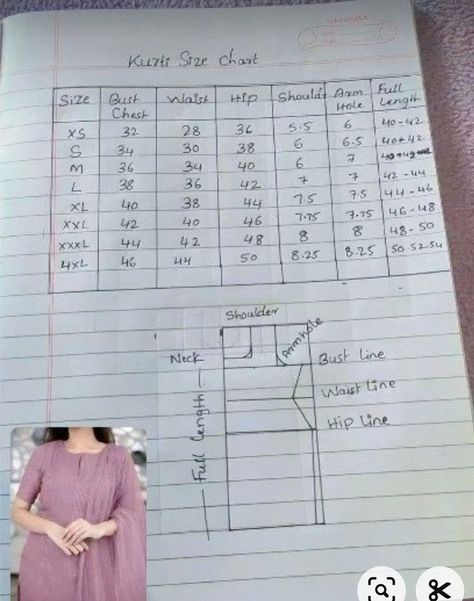 Kurti Size Chart
Size Bust Chest Waist Hip Shoulder Arm Hole Full Length
XS 32 28 36 5.5 6 40-42
S 34 30 38 6 6.5 40+42
M 36 34 40 6 7
L 38 36 42 7 7 42-44
XL 40 38 44 7.5 7.5 44-46
XXL 42 40 46 7.75 7.75 46-48
XXXL 44 42 48 8 8 48-50
4XL 46 44 50 8.25 8.25 50 52-54
Shoulder
Armhole
Neck
Bust line
Waist Line
Hip Line
Full length